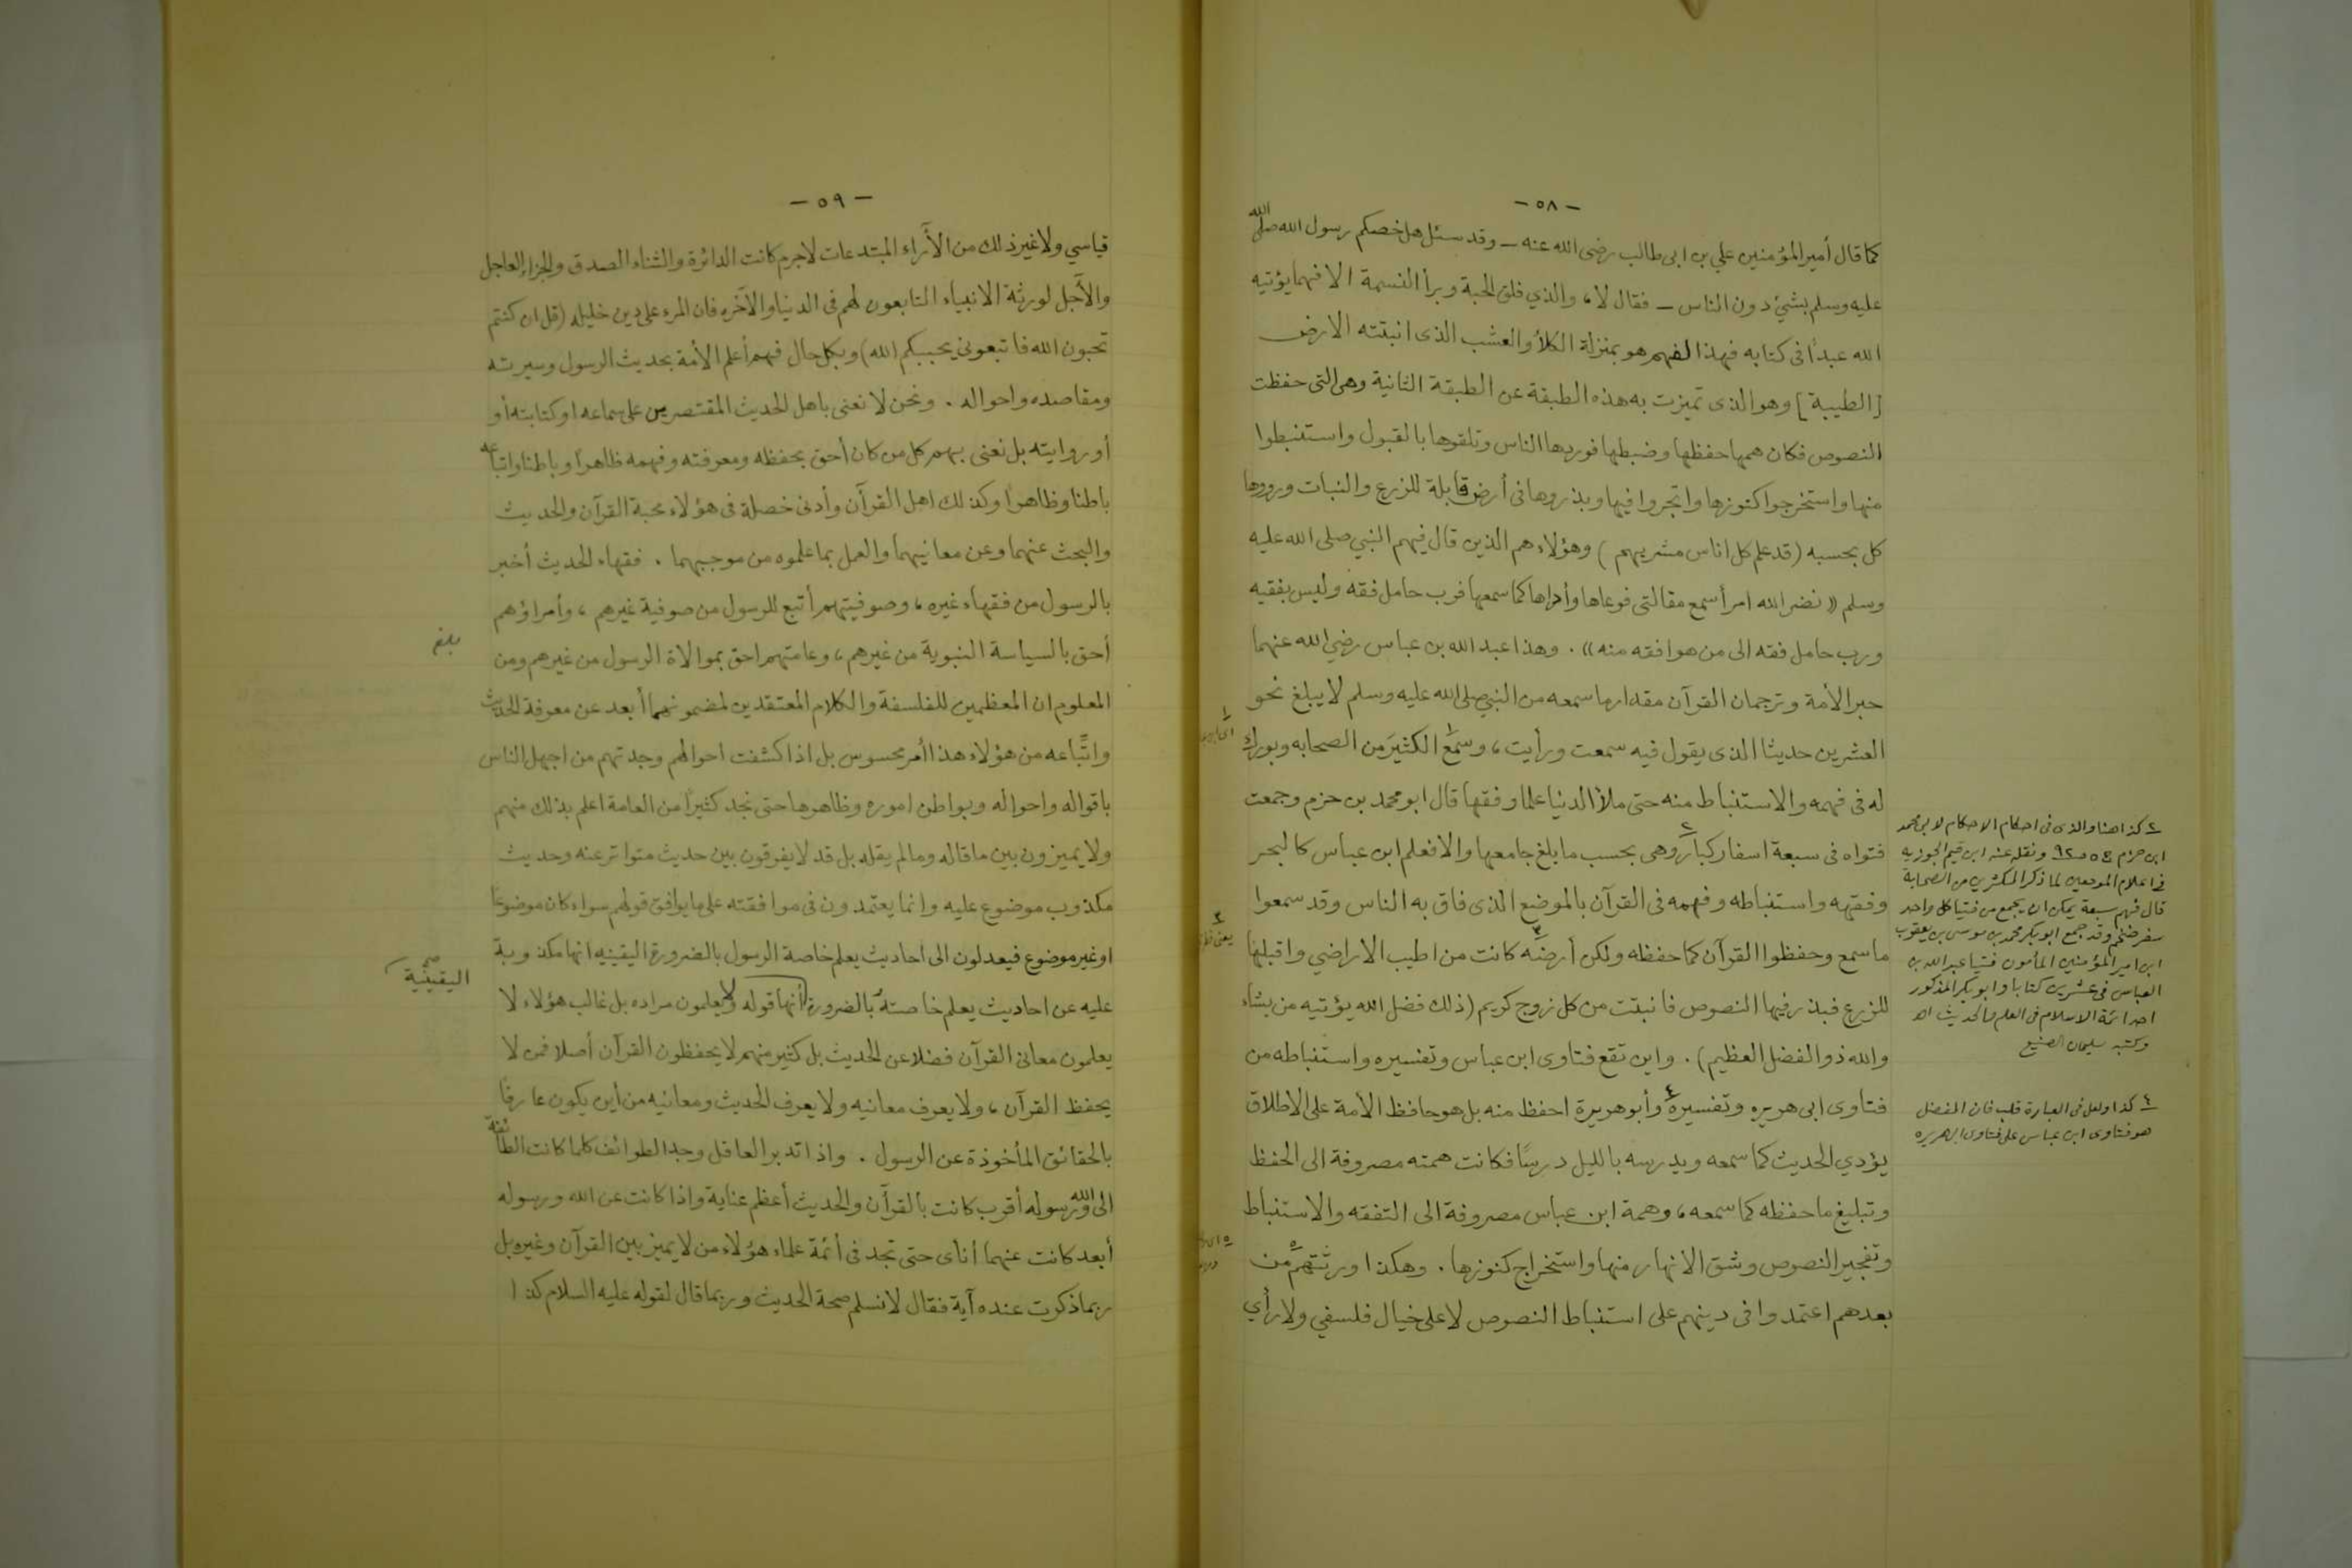 - ٥٨ -
كما قال أمير المؤمنين علي بن ابى طالب رضى الله عنه - وقد سئل هل خصكم رسول الله صلى الله
عليه وسلم بشيئ دون الناس - فقال لا، والذي فلق الحبة وبرأ النسمة الا فهما يؤتيه
الله عبداً فى كتابه فهذا الفهم هو بمنزلة الكلأ والعشب الذى انبتته الارض
[الطيبة] وهو الذى تميزت به هذه الطبقة عن الطبقة الثانية وهى التى حفظت
النصوص فكان همها حفظها وضبطها فوردها الناس وتلقوها بالقبول واستنبطوا
منها واستخرجوا كنوزها واتجروا فيها وبذروها فى أرض قابلة للزرع والنبات ورووها
كل بحسبه (قد علم كل اناس مشربهم) وهؤلاء هم الذين قال فيهم النبي صلى الله عليه
وسلم «نضر الله امرأ سمع مقالتى فوعاها وأداها كما سمعها فرب حامل فقه وليس بفقيه
ورب حامل فقه الى من هو افقه منه». وهذا عبد الله بن عباس رضي الله عنهما
حبر الأمة وترجمان القرآن مقدار ما سمعه من النبي صلى الله عليه وسلم لا يبلغ نحو
العشرين حديثا الذى يقول فيه سمعت ورأيت، وسمع الكثير من الصحابه وبورك
له فى فهمه والاستنباط منه حتى ملأ الدنيا علما وفقها قال ابو محمد بن حزم وجمعت
فتواه فى سبعة اسفار كبار ٢ وهى بحسب ما بلغ جامعها والا فعلم ابن عباس كالبحر
وفقهه واستنباطه وفهمه فى القرآن بالموضع الذى فاق به الناس وقد سمعوا
ما سمع وحفظوا القرآن كما حفظه ولكن أرضه ٣ كانت من اطيب الاراضي واقبلها
للزرع فبذر فيها النصوص فانبتت من كل زوج كريم (ذلك فضل الله يؤتيه من يشاء
والله ذو الفضل العظيم). واين تقع فتاوى ابن عباس وتفسيره واستنباطه من
فتاوى ابى هريره وتفسيره ٤ وأبو هريرة احفظ منه بل هو حافظ الأمة على الاطلاق
يؤدي الحديث كما سمعه ويدرسه بالليل درسًا فكانت همته مصروفة الى الحفظ
وتبليغ ما حفظه كما سمعه، وهمة ابن عباس مصروفة الى التفقه والاستنباط
وتفجير النصوص وشق الانهار منها واستخراج كنوزها. وهكذا ورثتهم ٥ من
بعدهم اعتمدوا فى دينهم على استنباط النصوص لا على خيال فلسفي ولا رأي
٢ كذا هنا والذى فى احكام الاحكام لابى محمد
ابن حزم ج ٥ ص ٩٢ ونقله عنه ابن قيم الجوزيه
فى اعلام الموقعين لما ذكر المكثرين من الصحابة
قال فهم سبعة يمكن ان يجمع من فتيا كل واحد
سفر ضخم وقد جمع ابو بكر محمد بن موسى بن يعقوب
ابن امير المؤمنين المأمون فتيا عبد الله بن
العباس فى عشرين كتابا وابو بكر المذكور
احد ائمة الاسلام فى العلم والحديث اه
وكتبه سليمان الصنيع
٤ كذا ولعل فى العبارة قلب فان المفضل
هو فتاوى ابن عباس على فتاوى ابى هريره
- ٥٩ -
قياسي ولا غير ذلك من الأراء المبتدعات لا جرم كانت الدائرة والثناء الصدق والجزاء العاجل
والآجل لورثة الانبياء التابعون لهم فى الدنيا والآخره فان المرء على دين خليله (قل ان كنتم
تحبون الله فاتبعونى يحببكم الله) وبكل حال فهم أعلم الأمة بحديث الرسول وسيرته
ومقاصده واحواله. ونحن لا نعنى باهل الحديث المقتصرين على سماعه او كتابته أو
أو روايته بل نعنى بهم كل من كان أحق بحفظه ومعرفته وفهمه ظاهراً وباطنا واتباعه
باطنا وظاهراً وكذلك اهل القرآن وأدنى خصلة فى هؤلاء محبة القرآن والحديث
والبحث عنهما وعن معانيهما والعمل بما علموه من موجبهما. فقهاء الحديث أخبر
بالرسول من فقهاء غيره، وصوفيتهم أتبع للرسول من صوفية غيرهم، وأمراؤهم
أحق بالسياسة النبوية من غيرهم، وعامتهم احق بموالاة الرسول من غيرهم ومن
المعلوم ان المعظمين للفلسفة والكلام المعتقدين لمضمونهما أبعد عن معرفة الحديث
واتِّباعه من هؤلاء هذا أمر محسوس بل اذا كشفت احوالهم وجدتهم من اجهل الناس
باقواله واحواله وبواطن اموره وظاهرها حتى نجد كثيراً من العامة اعلم بذلك منهم
ولا يميزون بين ما قاله وما لم يقله بل قد لا يفرقون بين حديث متواتر عنه وحديث
مكذوب موضوع عليه وانما يعتمدون فى موافقته على ما يوافق قولهم سواء كان موضوعًا
او غير موضوع فيعدلون الى احاديث يعلم خاصة الرسول بالضرورة اليقينيه انها مكذوبة
عليه عن احاديث يعلم خاصته بالضرورة أنها قوله ولا يعلمون مراده بل غالب هؤلاء لا
يعلمون معانى القرآن فضلا عن الحديث بل كثير منهم لا يحفظون القرآن أصلا فمن لا
يحفظ القرآن، ولا يعرف معانيه ولا يعرف الحديث ومعانيه من أين يكون عارفًا
بالحقائق المأخوذة عن الرسول. واذا تدبر العاقل وجد الطوائف كلما كانت الطائفة
الى الله ورسوله أقرب كانت بالقرآن والحديث أعظم عناية واذا كانت عن الله ورسوله
أبعد كانت عنهما أنأى حتى تجد فى أئمة علماء هؤلاء من لا يميز بين القرآن وغيره بل
ربما ذكرت عنده آية فقال لا نسلم صحة الحديث وربما قال لقوله عليه السلام كذا
بلغ
اليقينيَّة صح